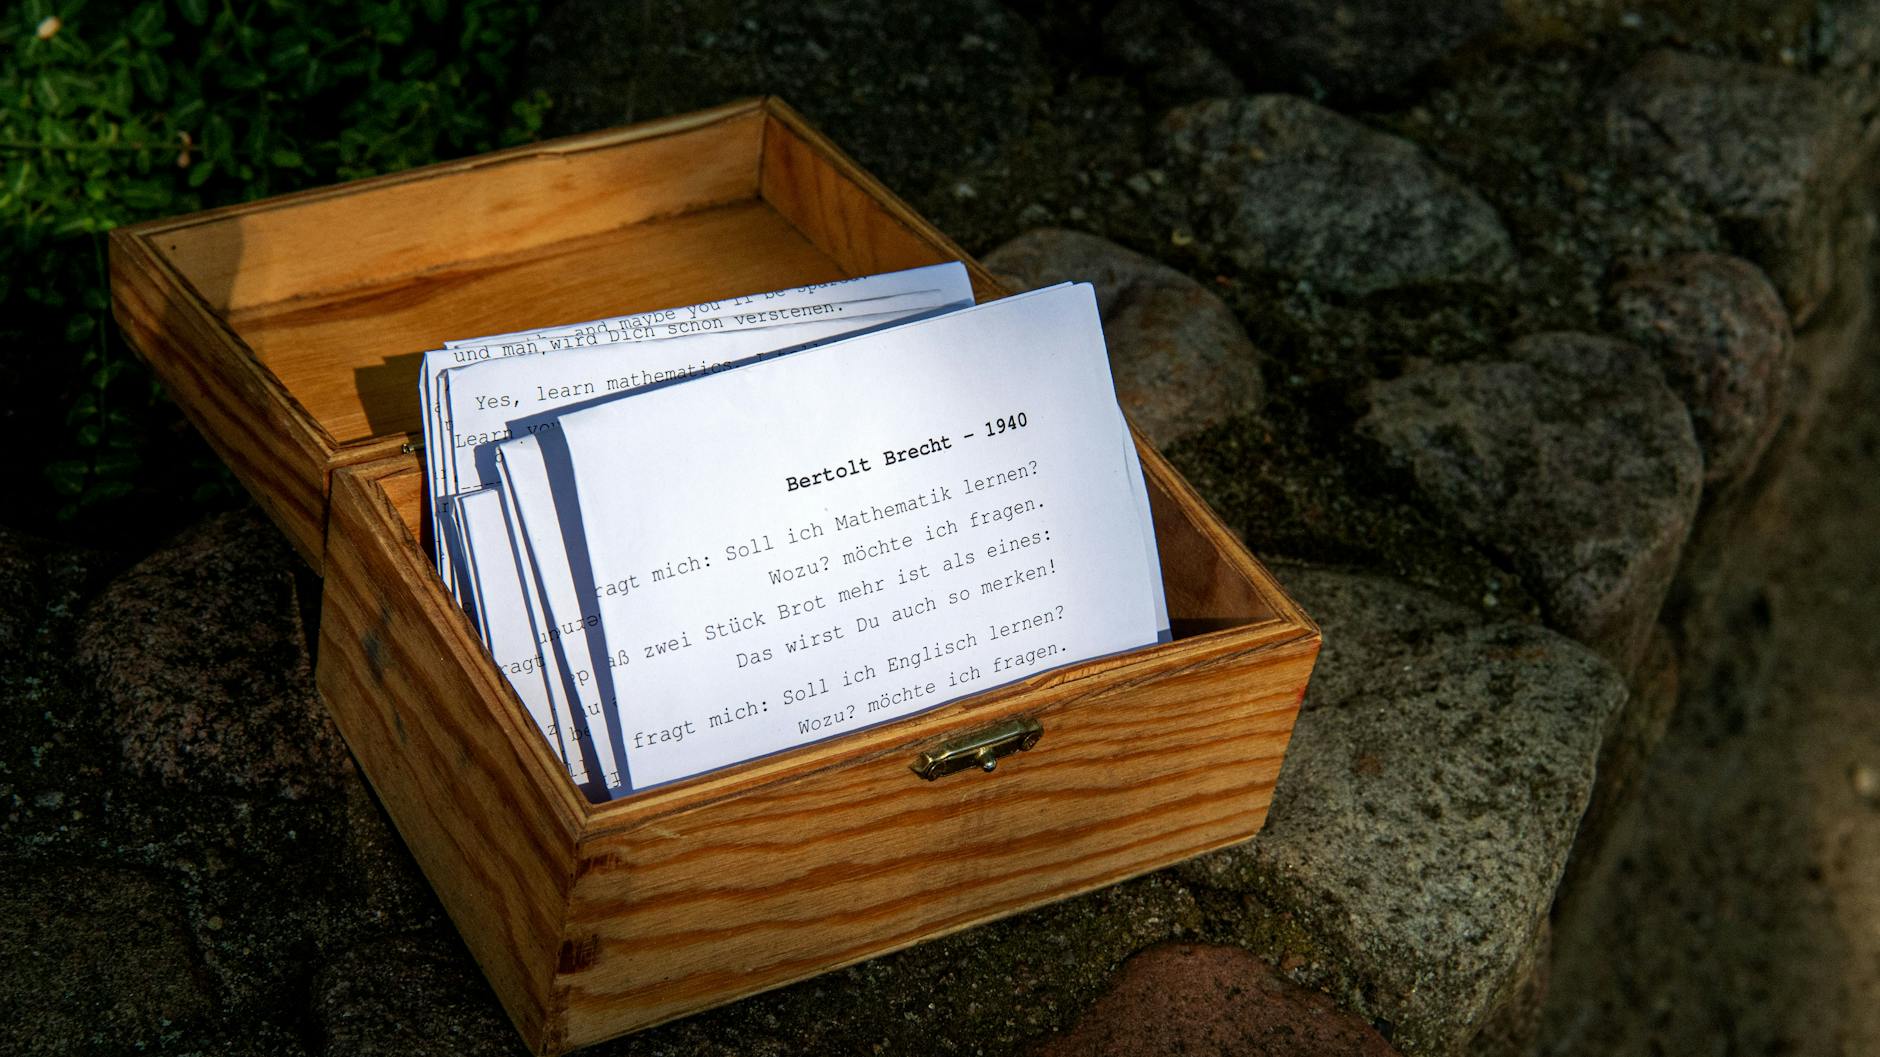 and maybe you'll be
und man wird Dich schon verstehen.
Yes, learn mathematics, I
Learn
Bertolt Brecht - 1940
ragt mich: Soll ich Mathematik lernen?
Wozu? möchte ich fragen.
aß zwei Stück Brot mehr ist als eines:
Das wirst Du auch so merken!
fragt mich: Soll ich Englisch lernen?
Wozu? möchte ich fragen.
ragt